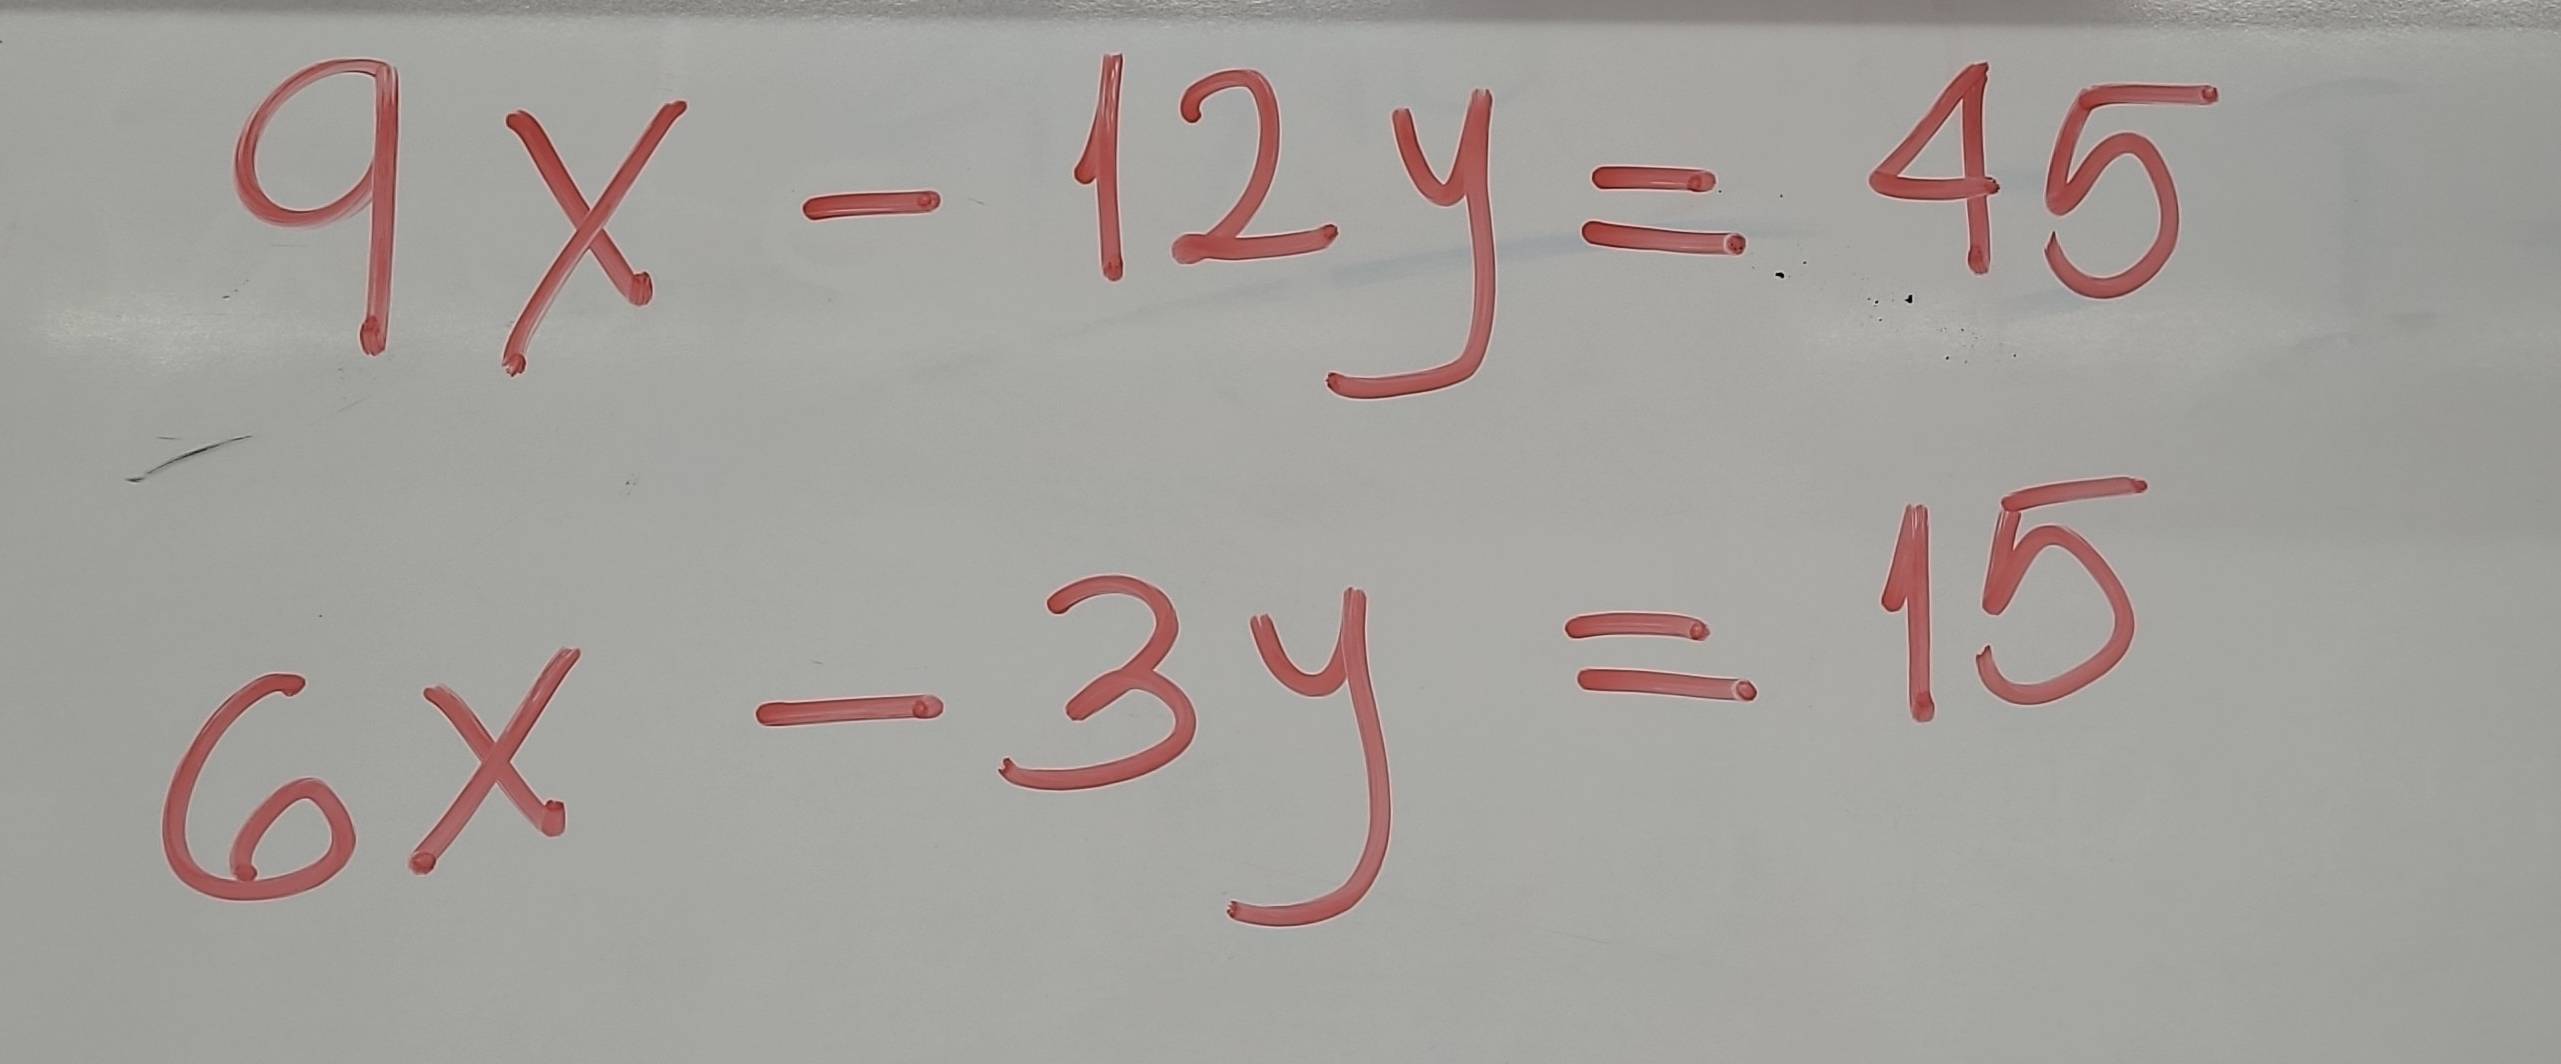 9x - 12y = 45
6x - 3y = 15